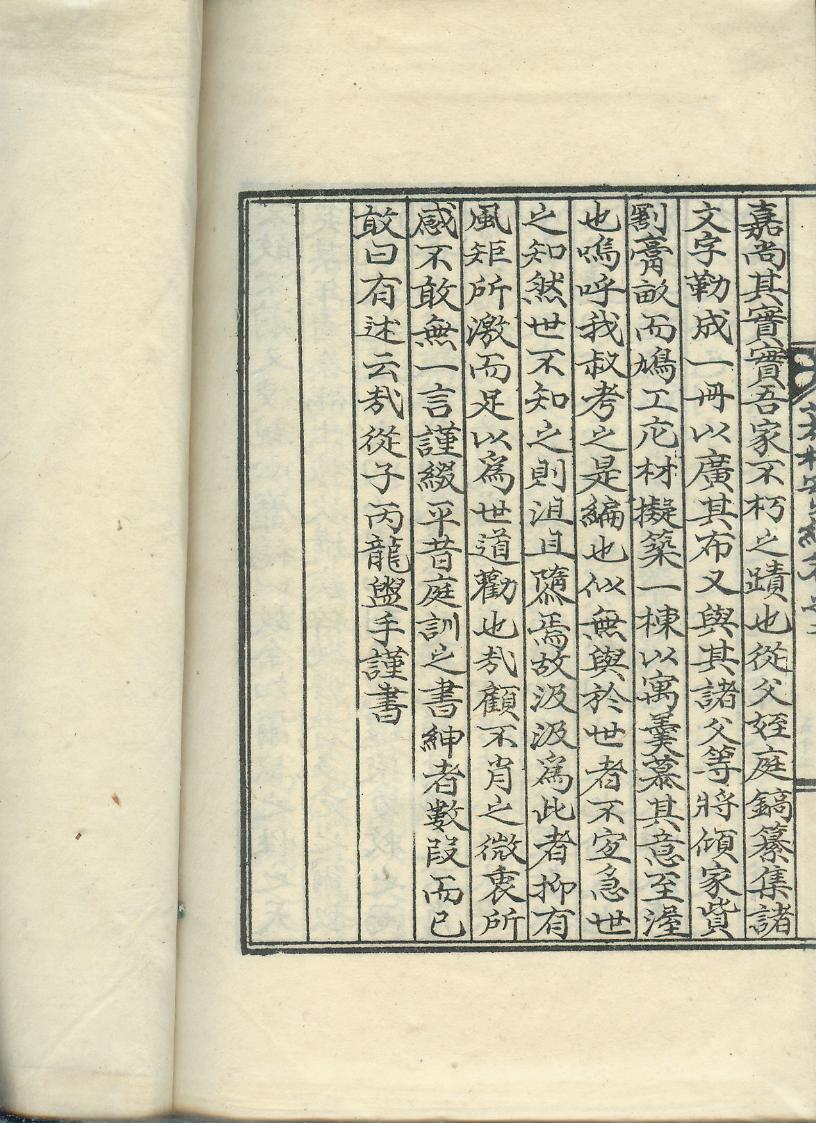 嘉尚其實實吾家不朽之蹟也從父姪庭鎬纂集諸
文字勒成一冊以廣其布又與其諸父等將傾家貲
劃膏畝而鳩工庀材擬築一棟以寓羹慕其意至渥
也嗚呼我叔考之是編也似無與於世者不宜急世
之知然世不知之則沮且隳焉故汲汲爲此者抑有
風矩所激而足以爲世道勸也㢤顧不肖之微衷所
感不敢無一言謹綴平昔庭訓之書紳者數段而已
敢曰有述云㢤從子丙龍盥手謹書